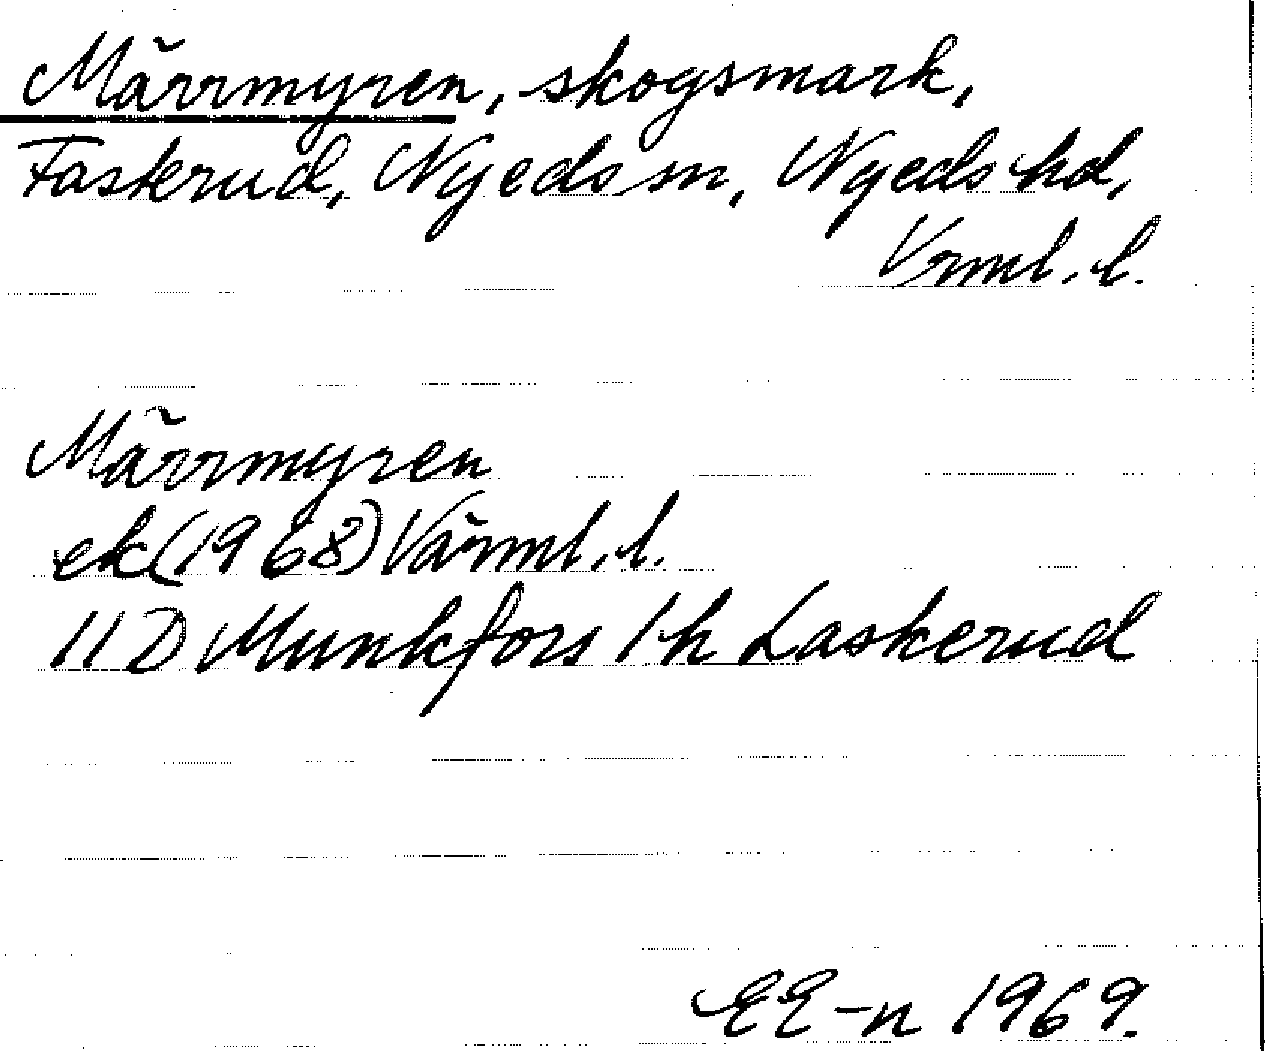 Märrmyren, skogsmark,
Faskerud, Nyeds sn, Nyeds hd,
Vrml. l.
Märrmyren
ek (1968) Värml. l.
11 D Munkfors 1 h Laskerud
EE-n 1969.